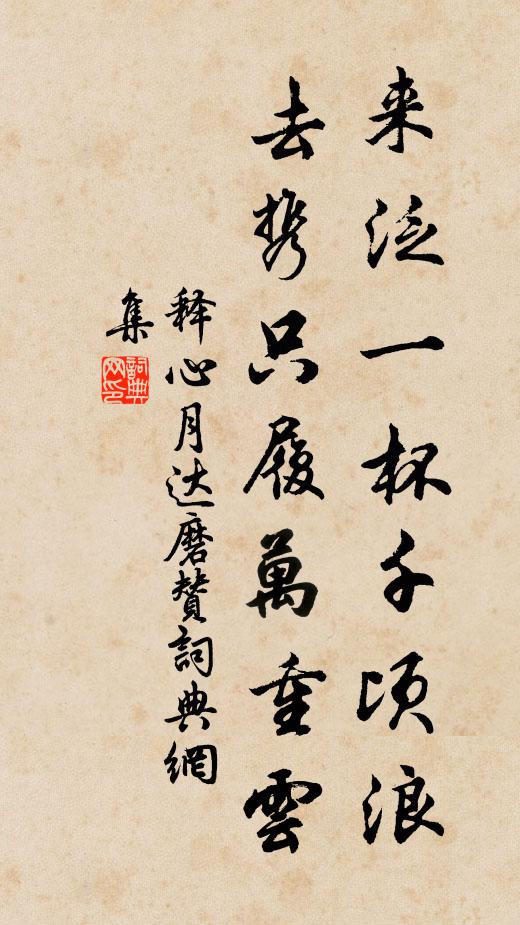 来泛一杯千顷浪
去携只履萬重雲
释心月达磨赞詞典網
集
詞典网印